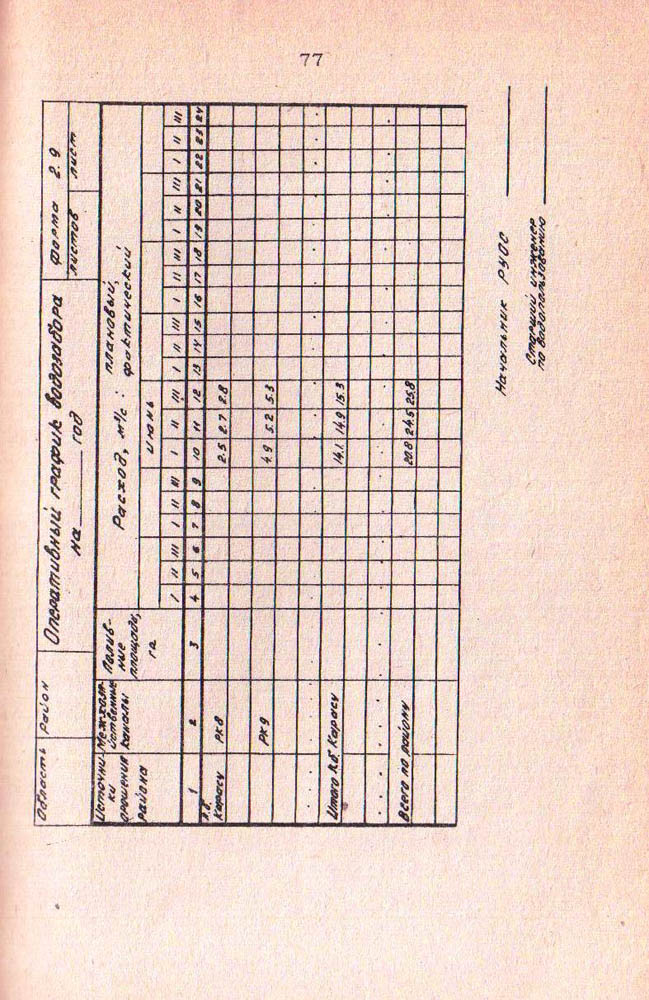 77
Область Район Оперативный график водозабора Форма 2.9
на год листов лист
Источни- Межхозяй- Полив- Расход, м³/с: плановый,
ки ственные ные фактический
орошения каналы площади,
района га
июнь
I II III I II III I II III I II III I II III I II III I II III
1 2 3 4 5 6 7 8 9 10 11 12 13 14 15 16 17 18 19 20 21 22 23 24
Л.б.
Карасу РК8 2.5 2.7 2.8
РК9 4.9 5.2 5.3
Итого Л.б. Карасу 14.1 14.9 15.3
Всего по району 20.8 24.5 25.8
Начальник РУОС
Старший инженер
по водопользованию